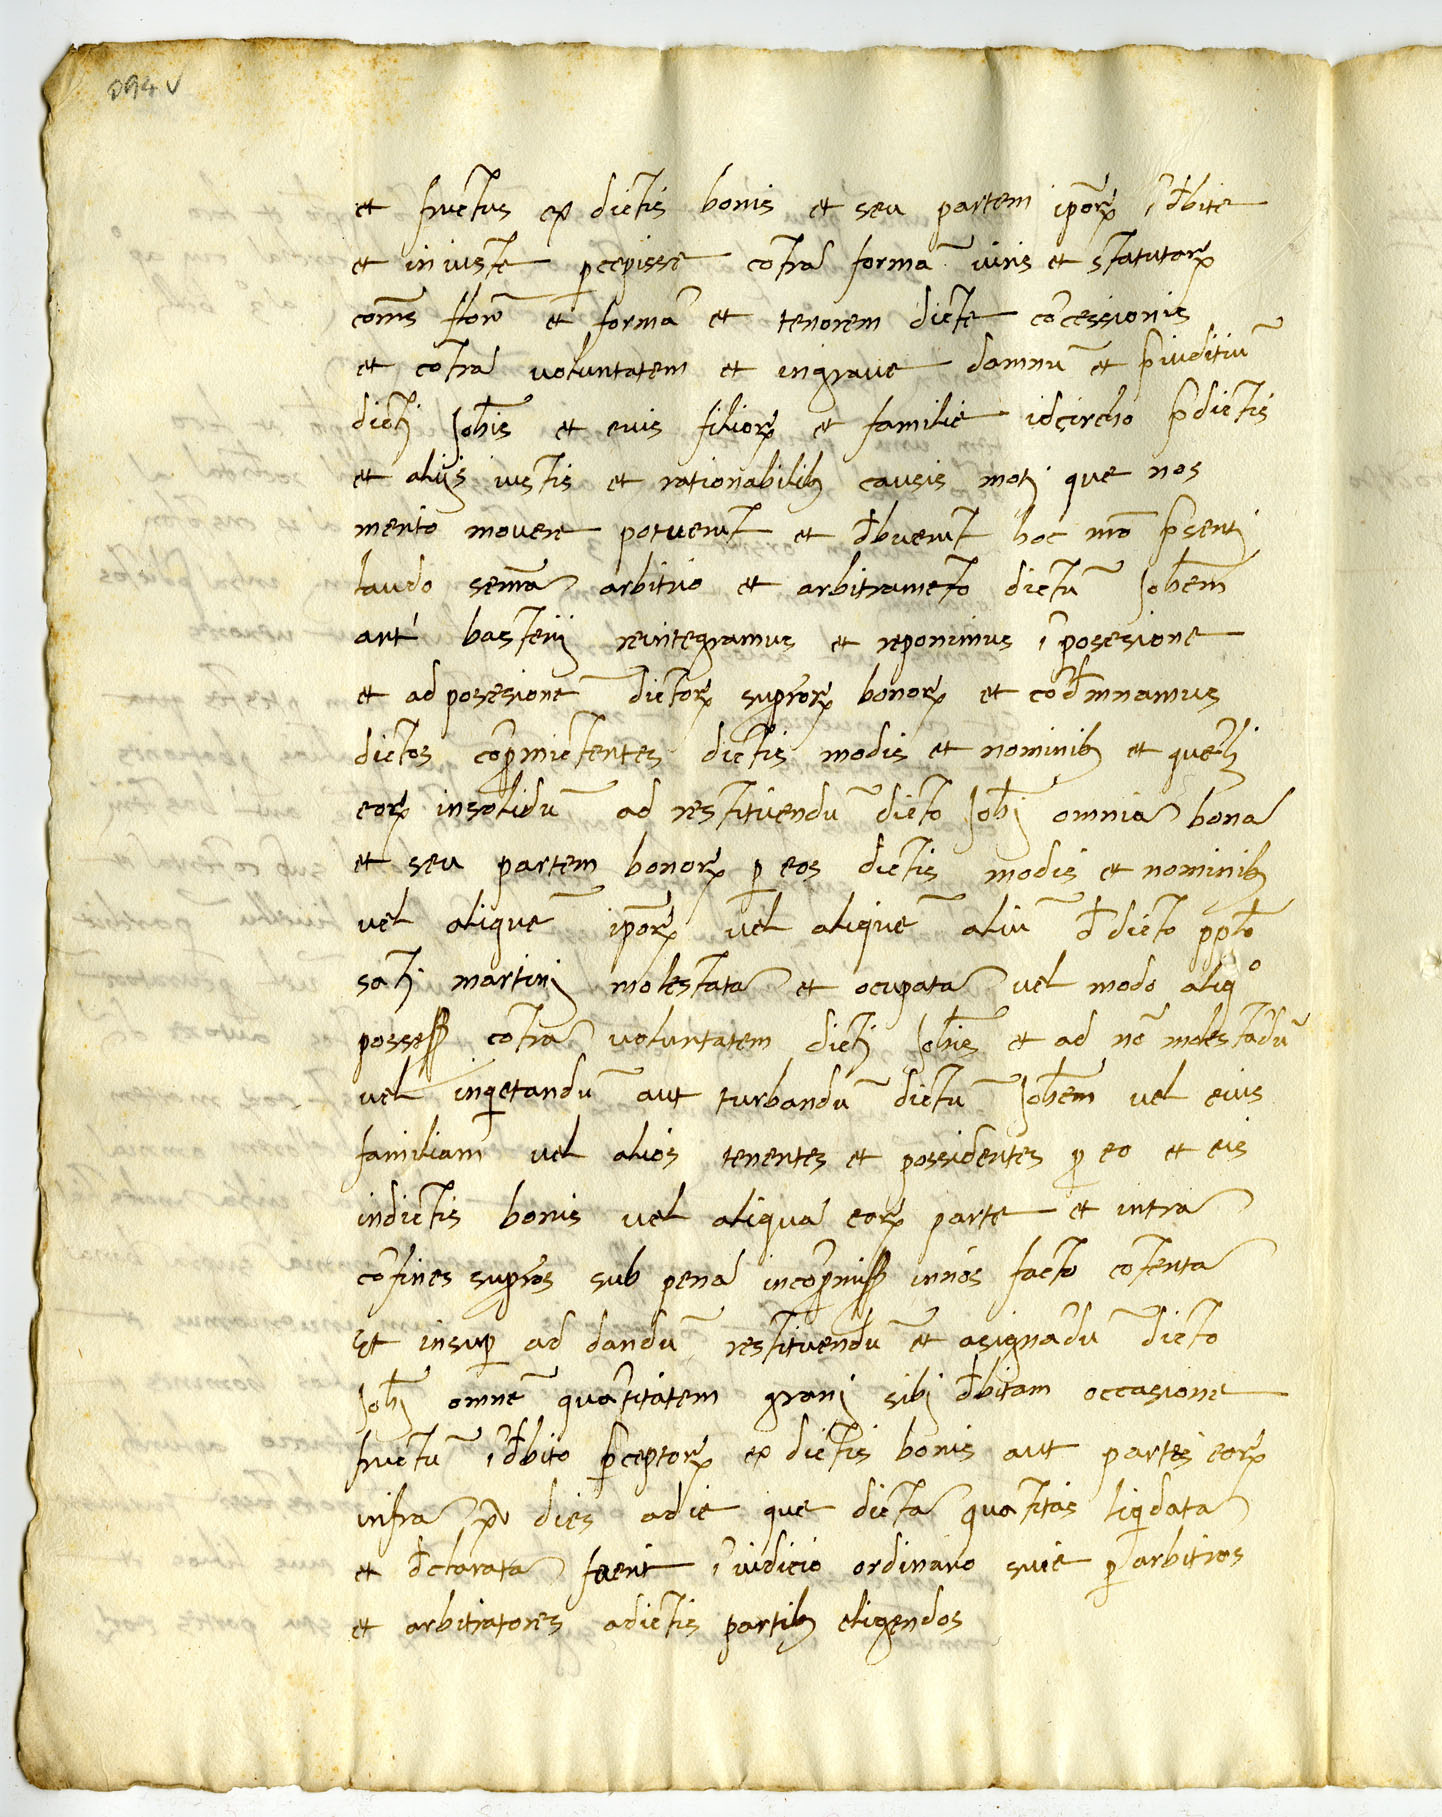 094 v
et fructus ex dictis bonis et seu partem ipoꝝ ĩdbite
et iniuste ꝑcepisse cõtra formã iuris et statutoꝝ
com̃s flor̃ et formã et tenorem dicte cõcessionis
et cõtra voluntatem et ingraue damnũ et p̃iuditiũ
dictj Joh̃is et euis filioꝝ et familie idcircho p̃dictis
et alijs iustis et rationabilibꝫ causis motj que nos
merito mouere potuerũt et dbuerũt hoc mõ p̃sentj
laudo senñia arbitrio et arbitramẽto dictũ Joh̃em
ant̃ basterij reintegramus et reponimus ĩ posesione
et ad posesionẽ dictoꝝ supr̃oꝝ bonoꝝ et cõdmnamus
dictos cõꝓmictentes dictis modis et nominibꝫ et quẽlꝫ
eoꝝ insolidũ ad restituendũ dicto Joh̃j omnia bona
et seu partem bonoꝝ ꝑ eos dictis modis et nominibꝫ
vel aliquẽ ipõꝝ vel aliquẽ aliũ d dicto ppl̃o
sãtj martinj molestata et ocupata vel modo aliqº
possess̃ cõtra voluntatem dictj Joh̃is et ad nõ molestãdũ
vel inq̃etandũ aut turbandũ dictũ Joh̃em vel eius
familiam vel alios tenentes et possidentes ꝓ eo et eis
indictis bonis vel aliqua eoꝝ parte et intra
cõfines supr̃os sub pena incõꝓmiss̃ innõs facto cõtenta
Et insuꝑ ad dandũ restituendũ et asignãdũ dicto
Joh̃j omnẽ quãtitatem granj sibj dbitam occasione
fructũ ĩdbito p̃ceptoꝝ ex dictis bonis aut partis eoꝝ
infra xv dies adie que dicta quãtitas liq̃data
et dclarata fuerit ĩ iudicio ordinario siue ꝑ arbitros
et arbitratores adictis partibꝫ eligendos